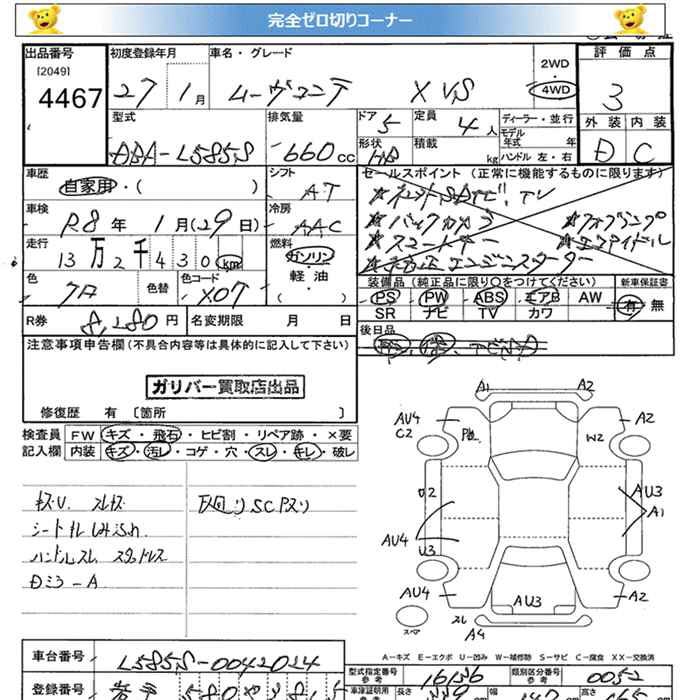 完全ゼロ切りコーナー
出品番号 初度登録年月 車名・グレード 2WD 評価点
[2049]
4467 27 1月 ムーヴコンテ X VS 4WD 3
型式 排気量 ドア 5 定員 4人 ディーラー・並行 外装 内装
モデル年式 年
DBA-L585S 660cc 形状 HB 積載 kg ハンドル 左・右 D C
車歴 シフト セールスポイント(正常に機能するものに限ります)
自家用・( ) AT
車検 冷房 ★バックカメラ
R8年 1月(29日) AAC ★スマートキー ★エコアイドル
走行 燃料 ★純正エンジンスターター
13万2千430km ガソリン
軽・油
( ・ )
色 色替 色コード 装備品(純正品に限り○をつけてください) 新車保証書
X07 PS PW ABS エアB AW 有・無
SR ナビ TV カワ
R券 8,280円 名変期限 月 日 後日品
注意事項申告欄(不具合内容等は具体的に記入して下さい)
ガリバー買取店出品
修復歴 有 〔箇所 〕
検査員記入欄 FW キズ・飛石・ヒビ割・リペア跡・×要
内装 キズ・汚レ・コゲ・穴・スレ・キレ・破レ
キズU. スレキズ
シートスレ シミ汚れ
ハンドルスレ スタッドレス
Dミラ-A
下廻りSCアスリ
A1 A2
AU4 C2 A2
W2
U2 AU3 A1
AU4 U3
AU4 AU3 A2
スペア スレ A4
A-キズ E-エクボ U-凹み W-補修跡 S-サビ C-腐食 XX-交換済
車台番号 L585S-0042024
型式指定番号 16156 類別区分番号 0052
参考 参考
登録番号 580
車庫証明用 長さ 幅 高さ